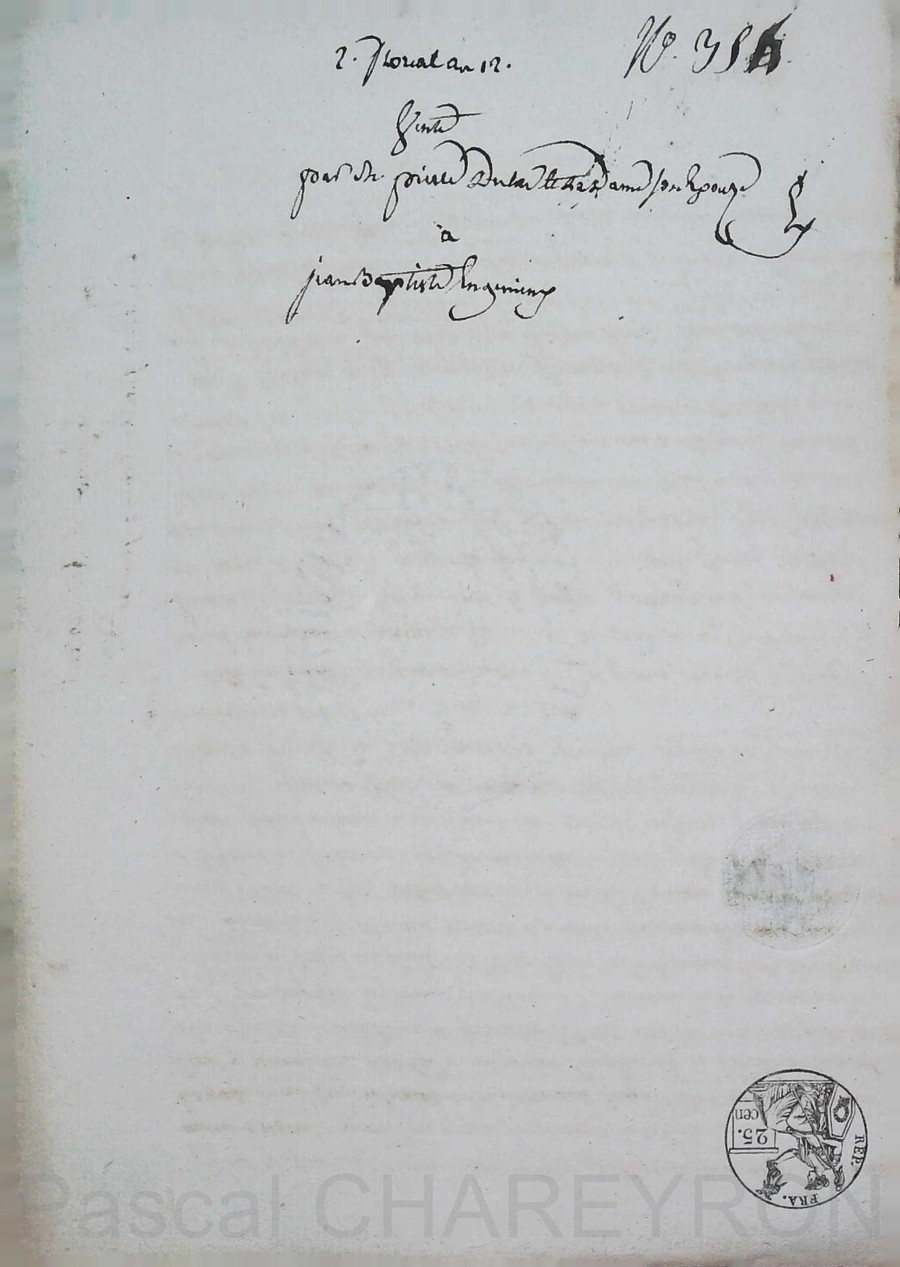 2. floreal an 12.
N°. 354
Vente
par Sr. pierre et La Dame son Epouze
a
jean Baptiste Ingenieux
25.
cen
REP.
FRA.
Pascal CHAREYRON